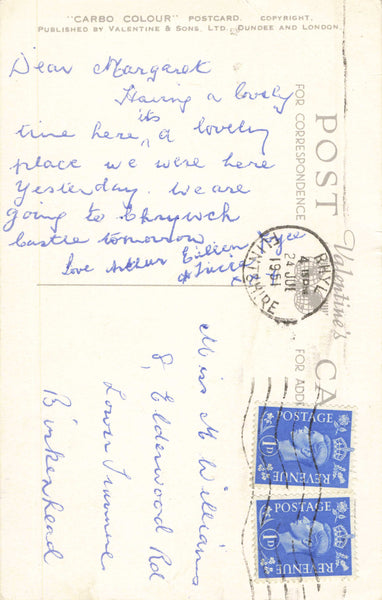 "CARBO COLOUR" POSTCARD. COPYRIGHT.
PUBLISHED BY VALENTINE & SONS, LTD., DUNDEE AND LONDON
Dear Margaret
Having a lovely
time here, its a lovely
place we were here
Yesterday. We are
going to
Castle tomorrow
Love Arthur Eileen
POST CA
Valentine's
FOR CORRESPONDENCE
FOR ADD
RHYL
24 JUL
1951
FLINTSHIRE
Miss M Williams
8, Elderwood Rd
Lower Tranmere
Birkenhead
POSTAGE
1D
REVENUE
POSTAGE
1D
REVENUE